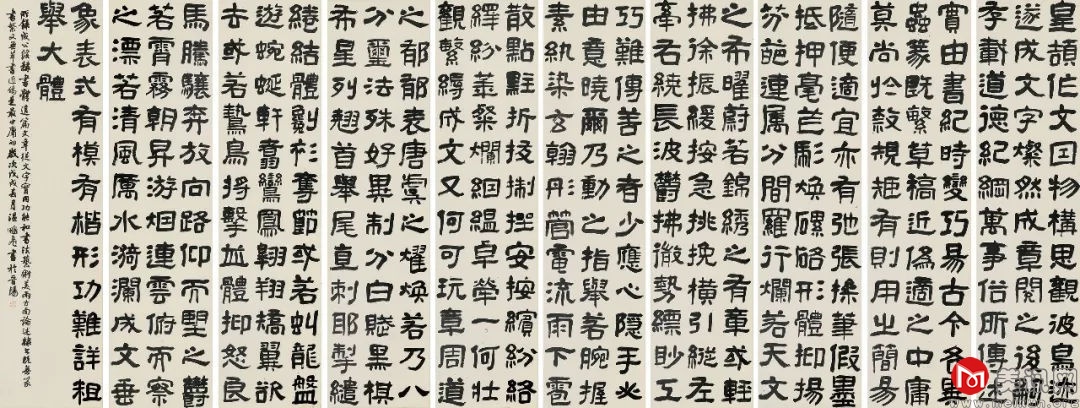 皇頡作文因物構思觀彼鳥迹
遂成文字燦然成章閱之後嗣
存載道德紀綱萬事俗所傳述
實由書紀時變巧易古今各異
蟲篆既繁草稿近偽適之中庸
莫尚於隸規矩有則用之簡易
隨便適宜亦有弛張操筆假墨
抵押毫芒彪煥磥硌形體抑揚
芬葩連属分間羅行爛若天文
之布曜蔚若錦綉之有章或輕
拂徐振緩按急挑挽橫引縱左
牽右繞長波鬱拂微勢縹緲工
巧難傳善之者少應心隱手必
由意曉爾乃動之指舉若腕握
素紈染玄翰彤管電流雨下雹
散點黕折拔掣挫安按繽紛絡
繹紛華粲爛絪縕卓犖一何壯
觀繁縟成文又何可玩章周道
之郁郁表唐虞之耀煥若乃八
分璽法殊好異制分白賦黑棋
布星列翹首舉尾直刺耶掣繾
綣結體劖衫奪節或若虯龍盤
遊蜿蜒軒翥鸞鳳翱翔矯翼欲
去或若鷙鳥將擊並體抑怒良
馬騰驤奔放向路仰而望之鬱
若霄霧朝昇游烟連雲俯而察
之漂若清風厲水漪瀾成文垂
象表式有模有楷形功難詳粗
舉大體
所錄成公綏隸書體這篇文章從文字實用功能和書法藝術美兩方面論述隸書
歲次戊戌 月溫 書於晉陽